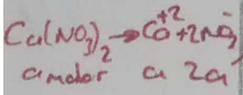 Ca(NO₃)₂ → Ca⁺² + 2NO₃⁻
a molar a 2a